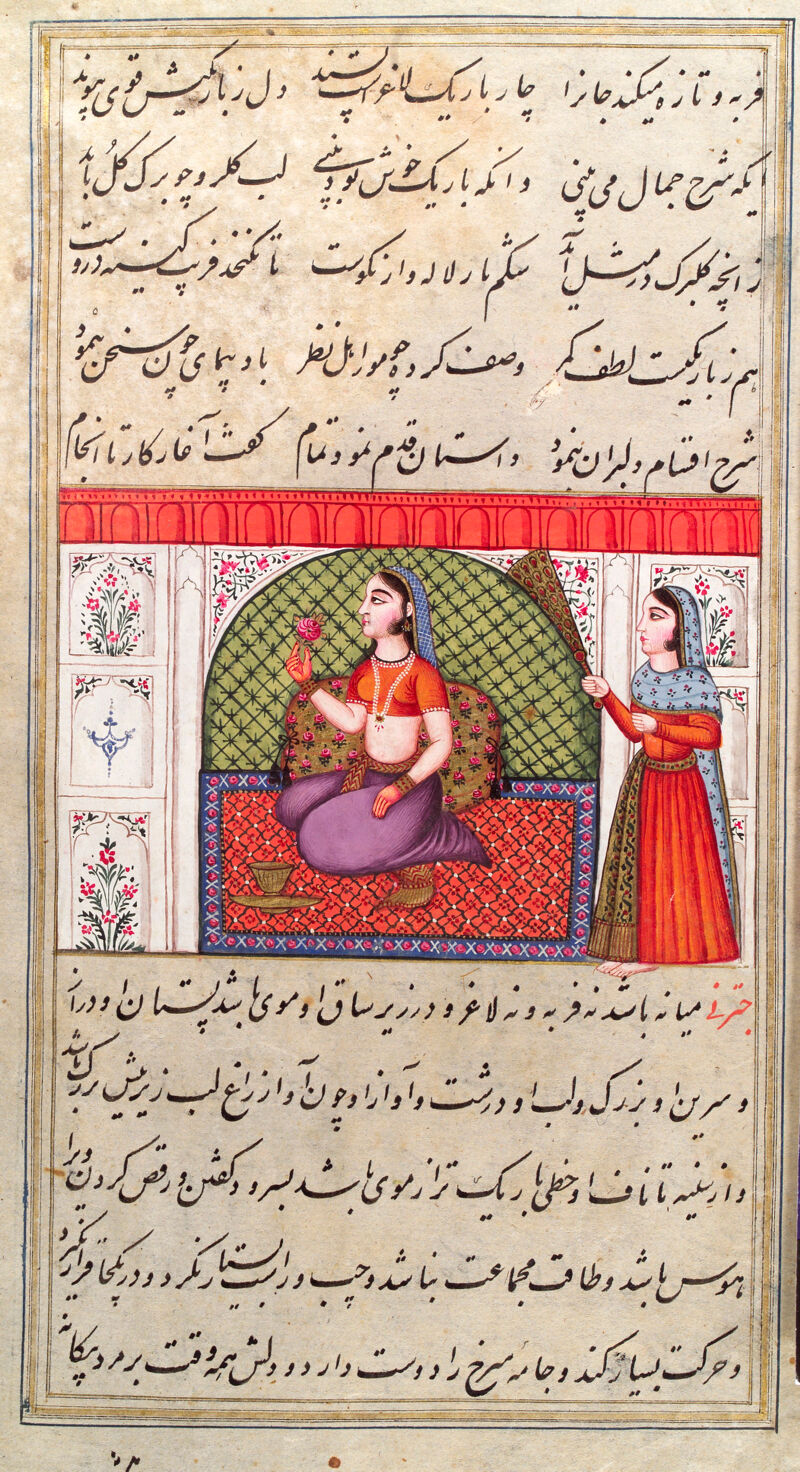 فربه و تازه میکند جانرا چار باریک لاغر است پسند دل ز باریکیش قوی پیوند
ایکه شرح جمال می بینی وانکه باریک خوش بود بینی لب کلرو چو برک کل باید
زانچه کلبرک در مثل آید شکم نار لاله وار نکوست تا نکنجد فریب کینه دروست
هم ز باریکیست لطف کمر وصف کرده چو مو اهل نظر باد پیمای چون سخن پیمود
شرح اقسام دلبران بنمود داستان قدم نمود تمام کفت آغاز کار تا انجام
چترنی میانه باشد نه فربه و نه لاغر و در زیر ساق او موی باشد پستان او دراز
و سرین او بزرک و لب او درشت و آواز او چون آواز زاغ لب زیرینش بزرک باشد
و از سینه تا ناف او خطی باریک تر از موی باشد بسرود کفتن و رقص کردن ویرا
هوس باشد و طاقت مجامعت نباشد و چپ و راست بسیار نکرد و در یکجا قرار نکیرد
و حرکت بسیار کند و جامه سرخ را دوست دارد و دلش همه وقت بر مرد بیکانه